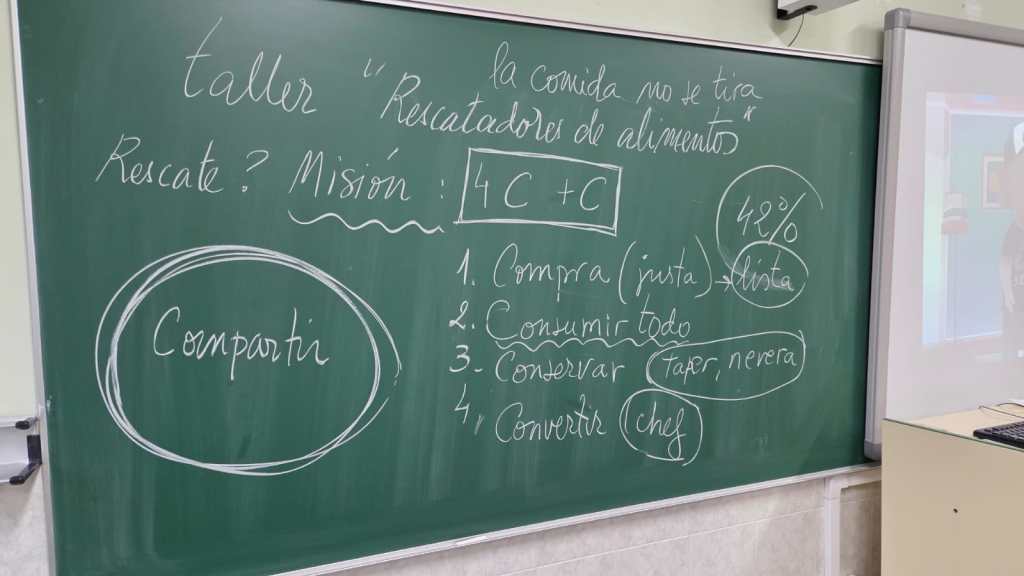 la comida no se tira
taller "Rescatadores de alimentos"
Rescate? Misión: 4C +C
42%
1. Compra (justa) → lista
2. Consumir todo
3- Conservar taper, nevera
4, Convertir chef
Compartir